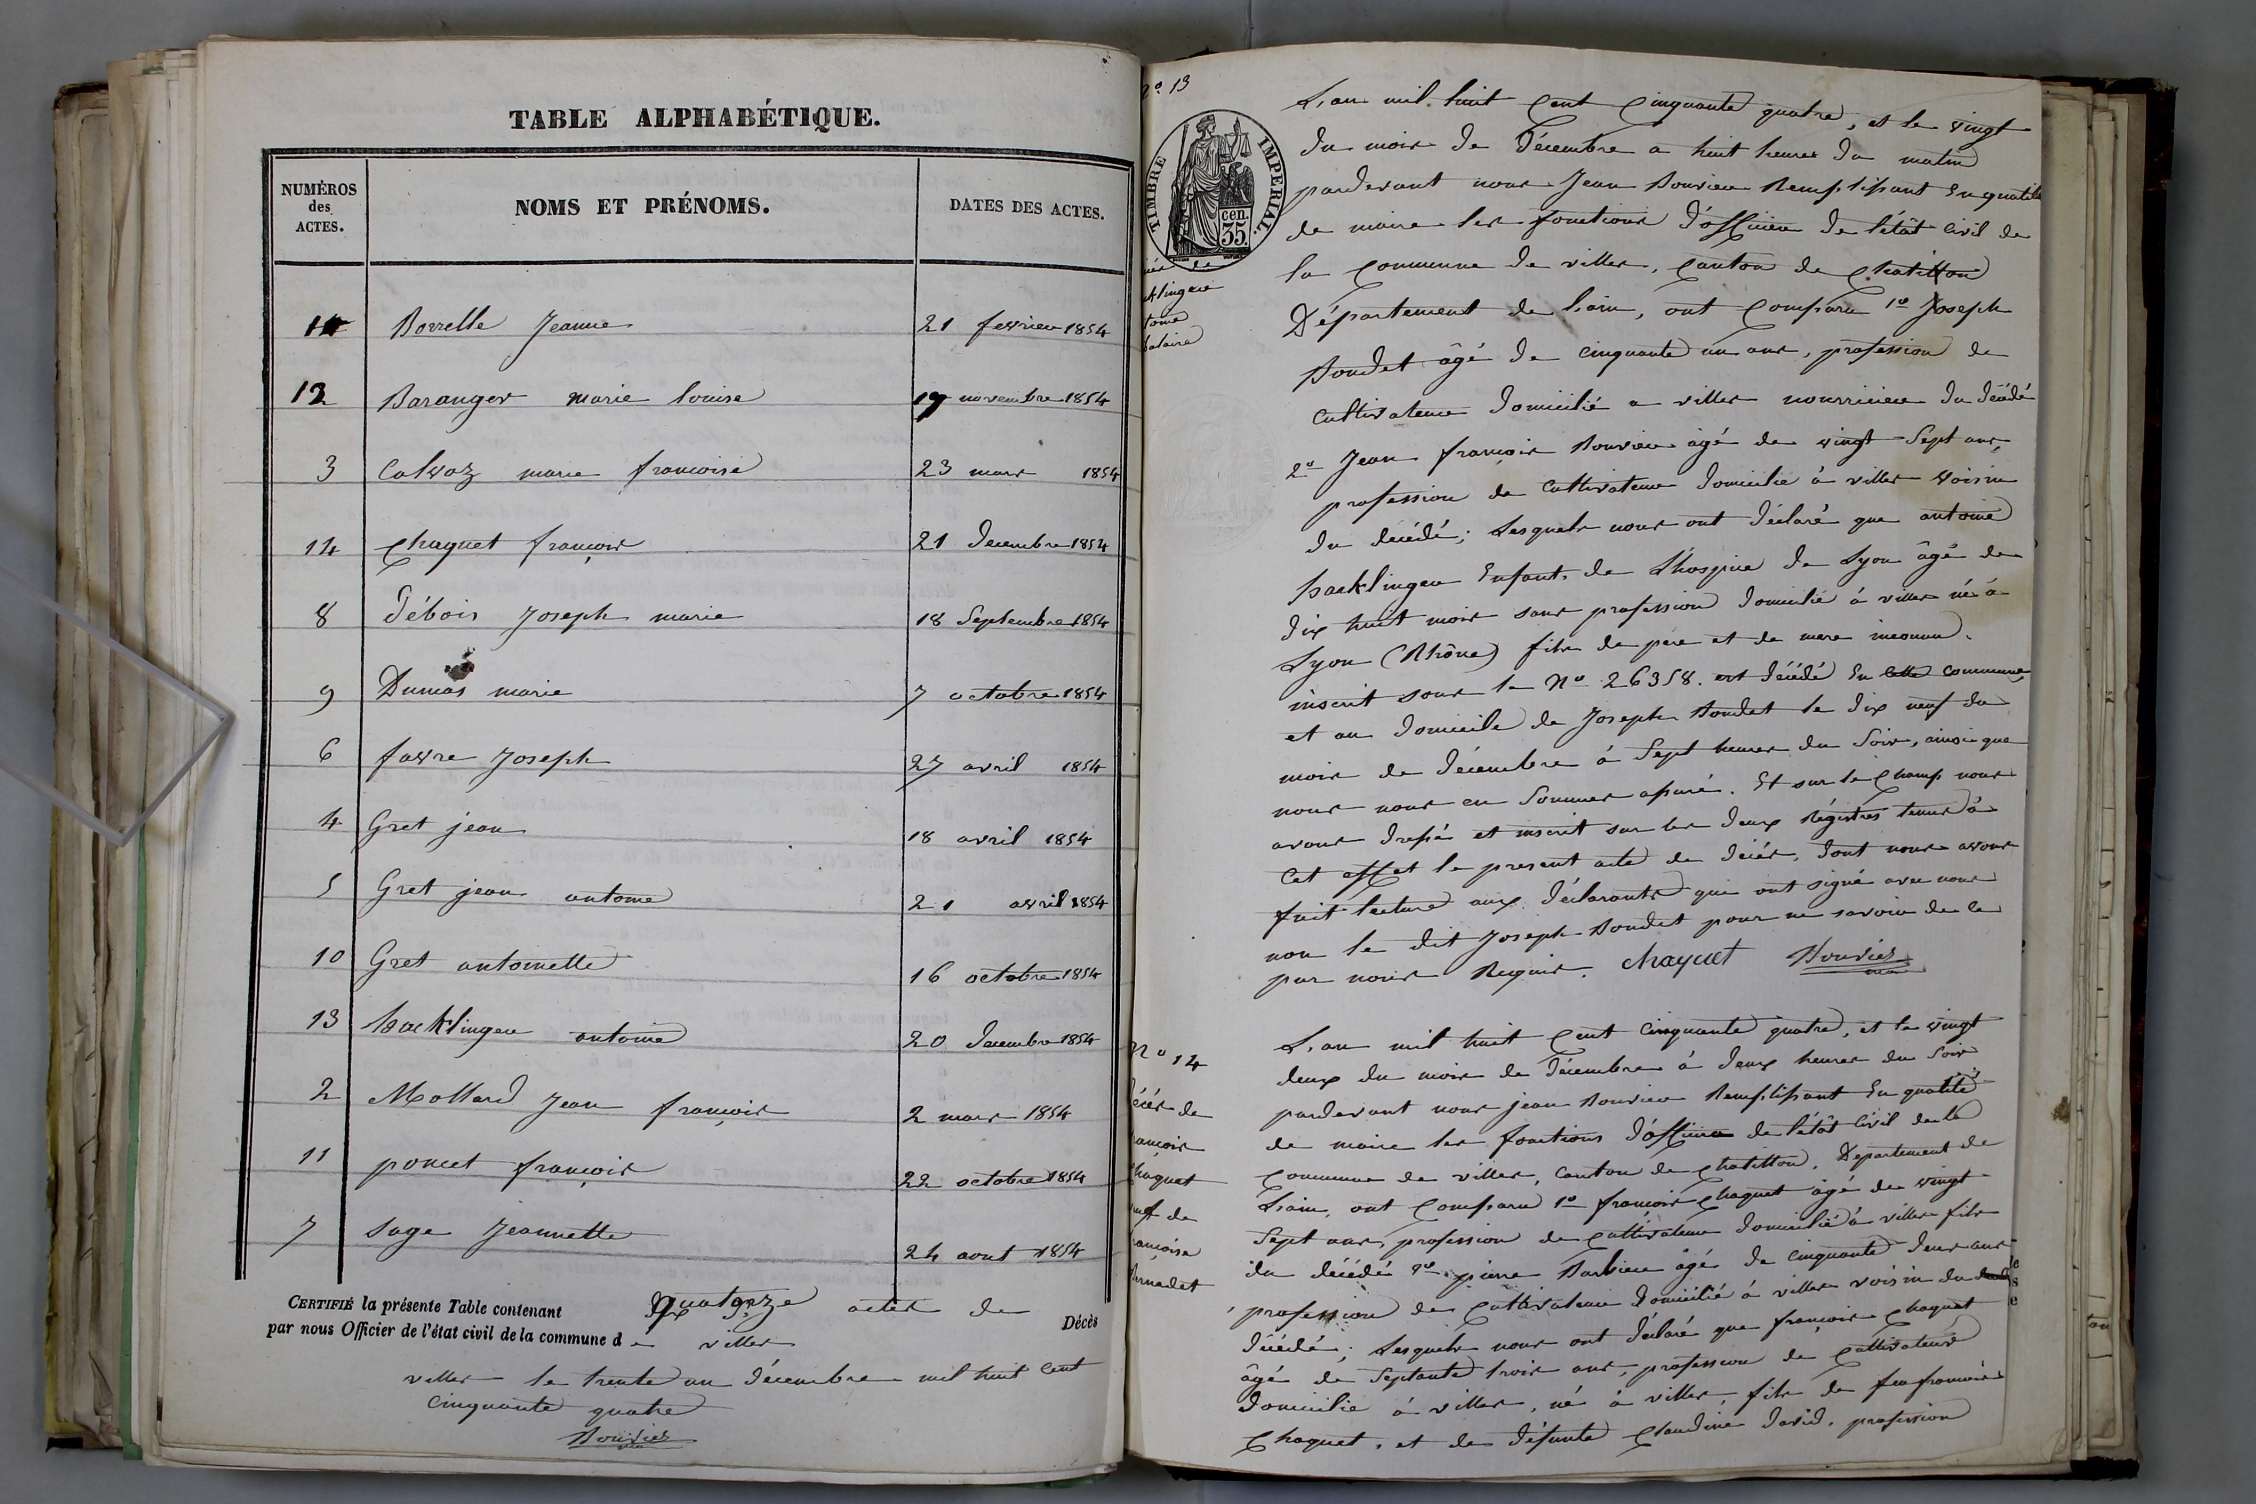 TABLE ALPHABÉTIQUE.
NUMÉROS des ACTES. NOMS ET PRÉNOMS. DATES DES ACTES.
Borrelle Jeanne 21 fevrier 1854
12 Baranger marie louise 19 novembre 1854
3 Calvaz marie francoise 23 mars 1854
14 Chaquet françois 21 Decembre 1854
8 Débois Joseph marie 18 Septembre 1854
9 Dumas marie 7 octobre 1854
6 favre Joseph 27 avril 1854
4 Gret jean 18 avril 1854
5 Gret jean antoine 21 avril 1854
10 Gret antoinette 16 octobre 1854
13 antoine 20 Decembre 1854
2 Mollard Jean françois 2 mars 1854
11 poncet françois 22 octobre 1854
7 Sage Jeannette 24 aout 1854
CERTIFIÉ la présente Table contenant quatorze actes de Décès
par nous Officier de l'état civil de la commune de villes
villes le trente un décembre mil huit cent
cinquante quatre
Bouvier
n.º 13
TIMBRE IMPERIAL.
cen. 35.
L'an mil huit cent cinquante quatre, et le vingt
du mois de Décembre a huit heures du matin
pardevant nous Jean Bouvier Remplissant En qualité
de maire les fonctions d'officier de l'état civil de
la commune de villes, canton de chatillon
Département de l'ain, ont comparu 1º Joseph
Boudet âgé de cinquante un ans, profession de
cultivateur domicilié a villes nourricier du décédé
2º Jean françois Bouvier âgé de vingt Sept ans,
profession de cultivateur domicilié à villes voisin
du décédé; Lesquels nous ont déclaré que antoine
Enfant de L'hospice de Lyon âgé de
dix huit mois sans profession domicilié à villes né à
Lyon (Rhône) fils de père et de mere inconnu.
inscrit sous le Nº 26358. est décédé En cette commune,
et au domicile de Joseph Boudet le dix neuf du
mois de décembre à Sept heures du Soir, ainsi que
nous nous en sommes assuré. Et sur le champ nous
avons dressé et inscrit sur les deux Régistres tenus à
cet effet le present acte de décès, dont nous avons
fait lecture aux déclarants qui ont signé avec nous
non le dit Joseph Boudet pour ne savoir de ce
par nous Requis. chaquet Bouvier
nº 14
L'an mil huit cent cinquante quatre, et le vingt
deux du mois de Décembre à deux heures du Soir
pardevant nous jean Bouvier Remplissant En qualité
de maire les fonctions d'officier de l'état civil de la
commune de villes, canton de chatillon, Departement de
L'ain, ont comparu 1º françois chaquet âgé de vingt
Sept ans, profession de cultivateur domicilié à villes fils
du décédé 2º pierre Barbier âgé de cinquante deux ans
profession de cultivateur domicilié à villes voisin du
décédé; Lesquels nous ont déclaré que françois chaquet
âgé de Septante trois ans, profession de cultivateur
domicilié à villes, né à villes fils de feu françois
chaquet, et de défunte Claudine David, profession